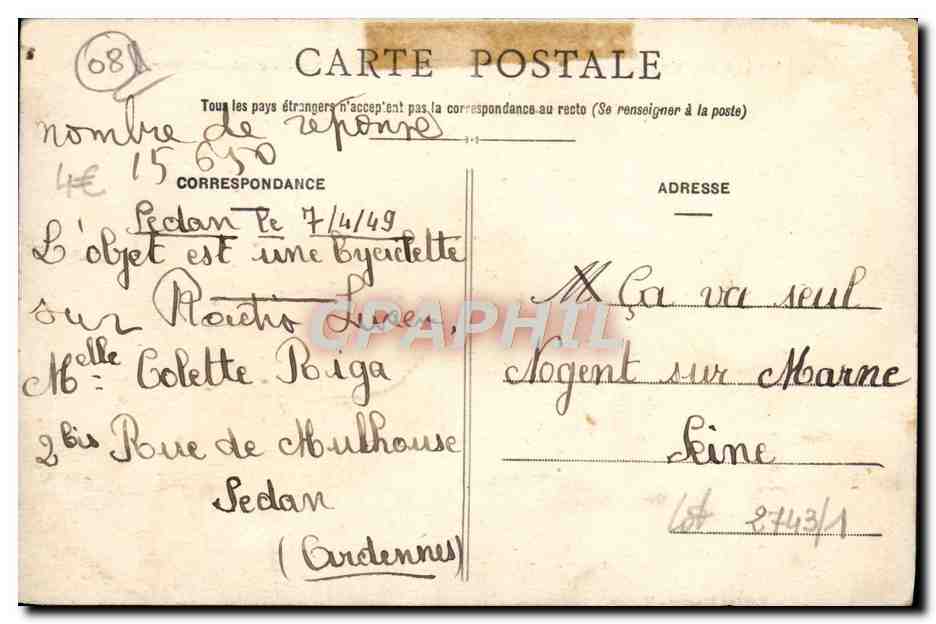 081
CARTE POSTALE
Tous les pays étrangers n'acceptent pas la correspondance au recto (Se renseigner à la poste)
nombre de réponse
15 650
4€
CORRESPONDANCE
Sedan le 7/4/49
L'objet est une bycidette
sur Radio
Melle Colette Riga
2 bis Rue de Mulhouse
Sedan
(Ardennes)
ADRESSE
M Ça va seul
Nogent sur Marne
Seine
Lot 2743/1
CPAPHIL